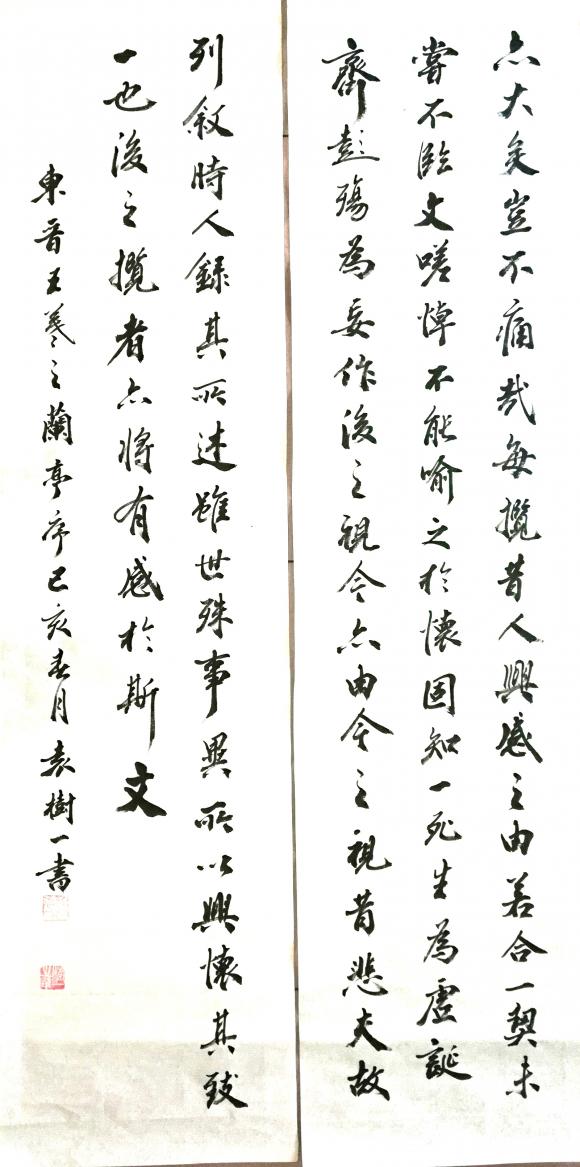 亦大矣豈不痛哉每攬昔人興感之由若合一契未
嘗不臨文嗟悼不能喻之於懷固知一死生為虛誕
齊彭殤為妄作後之視今亦由今之視昔悲夫故
列叙時人錄其所述雖世殊事異所以興懷其致
一也後之攬者亦將有感於斯文
東晉王羲之蘭亭序己亥春月袁樹一書